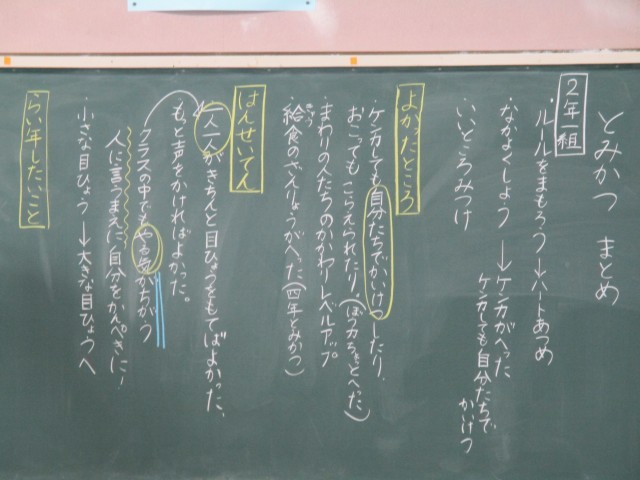 とみかつ まとめ
2年一組
・ルールをまもろう→ハートあつめ
・なかよくしよう→ケンカがへった
ケンカしても自分たちで
かいけつ
・いいところみつけ
よかったところ
・ケンカしても自分たちでかいけつしたり、
おこってもこらえられたり、(ぼう力ちょっとへった)
・まわりの人たちのかかわりレベルアップ
・給食のざんりょうがへった(四年とみかつ)
はんせいてん
一人一人がきちんと目ひょうをもてばよかった、
もっと声をかければよかった。
クラスの中でもやる気がちがう
人に言うまえに自分をかんぺきに!
・小さな目ひょう→大きな目ひょうへ
らい年したいこと